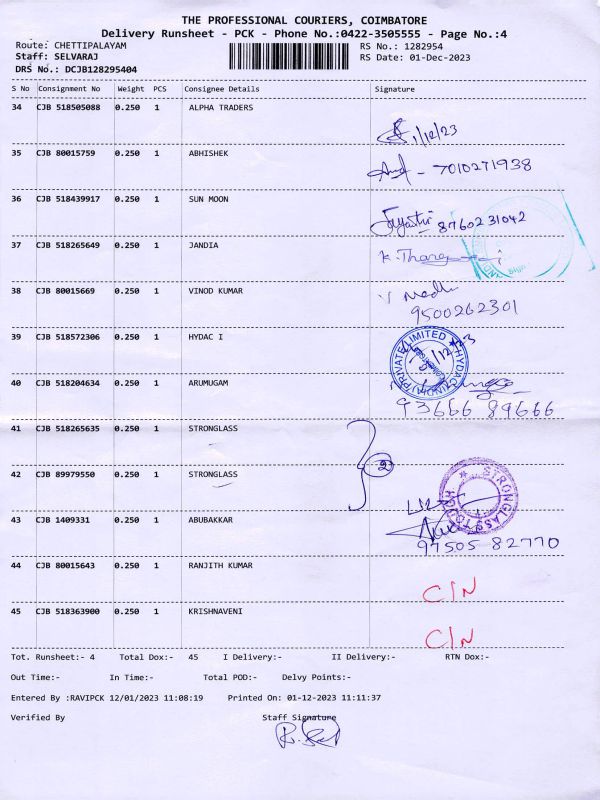 THE PROFESSIONAL COURIERS, COIMBATORE
Delivery Runsheet - PCK - Phone No.:0422-3505555 - Page No.:4
Route: CHETTIPALAYAM RS No.: 1282954
Staff: SELVARAJ RS Date: 01-Dec-2023
DRS No.: DCJB128295404
S No Consignment No Weight PCS Consignee Details Signature
34 CJB 518505088 0.250 1 ALPHA TRADERS
1/12/23
35 CJB 80015759 0.250 1 ABHISHEK
- 7010271938
36 CJB 518439917 0.250 1 SUN MOON
8760231042
37 CJB 518265649 0.250 1 JANDIA
K. Thang
38 CJB 80015669 0.250 1 VINOD KUMAR
9500262301
39 CJB 518572306 0.250 1 HYDAC I
HYDAC (INDIA) PRIVATE LIMITED
40 CJB 518204634 0.250 1 ARUMUGAM
93666 89666
41 CJB 518265635 0.250 1 STRONGLASS
42 CJB 89979550 0.250 1 STRONGLASS
2
STRONGLASS TOUGH
43 CJB 1409331 0.250 1 ABUBAKKAR
97505 82770
44 CJB 80015643 0.250 1 RANJITH KUMAR
C/N
45 CJB 518363900 0.250 1 KRISHNAVENI
C/N
Tot. Runsheet:- 4 Total Dox:- 45 I Delivery:- II Delivery:- RTN Dox:-
Out Time:- In Time:- Total POD:- Delvy Points:-
Entered By :RAVIPCK 12/01/2023 11:08:19 Printed On: 01-12-2023 11:11:37
Verified By Staff Signature